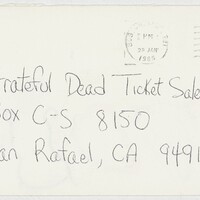 PM
1985
rateful Dead Ticket Sale
ox C-S 8150
an Rafael, CA 9491